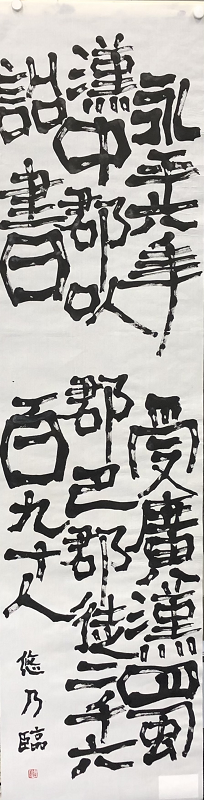 永平六年
漢中郡以
詔書
受廣漢蜀
郡巴郡徒二千六
百九十人
悠乃臨